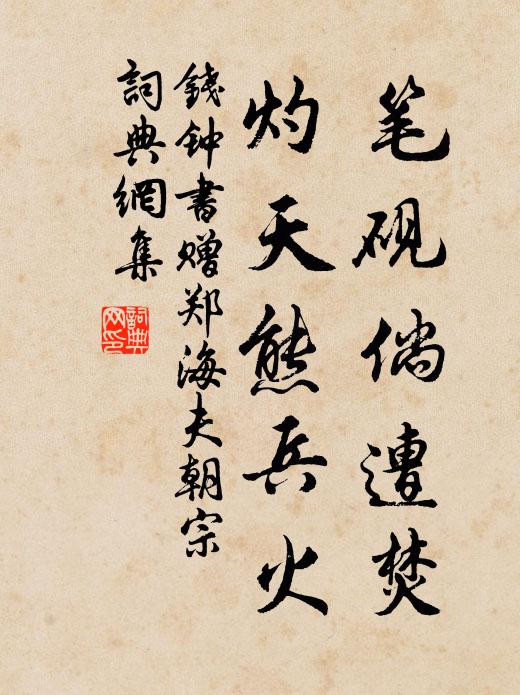 笔砚倘遭焚
灼天熊兵火
錢钟書赠郑海夫朝宗
詞典網集
詞典网印